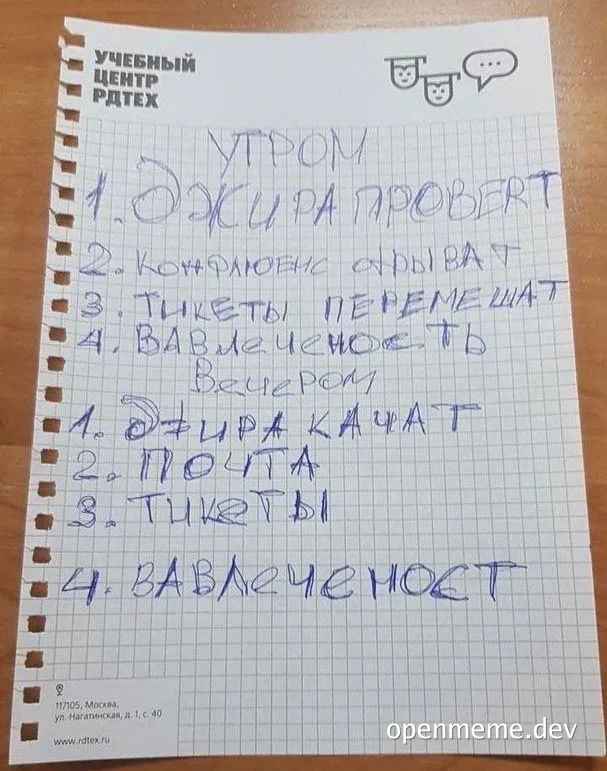 УЧЕБНЫЙ
ЦЕНТР
РДТЕХ
УТРОМ
1. ДЖИРА ПРОВЕRТ
2. КОНФЛЮЕНС ОТРЫВАТ
3. ТИКЕТЫ ПЕРЕМЕШАТ
4. ВАВлечеНОСТЬ
ВечеРОМ
1. ДЖИРА КАЧАТ
2. ПОЧТА
3. ТИКеТЫ
4. ВАВлечеНОСТ
117105, Москва,
ул. Нагатинская, д. 1, с. 40
www.rdtex.ru
openmeme.dev